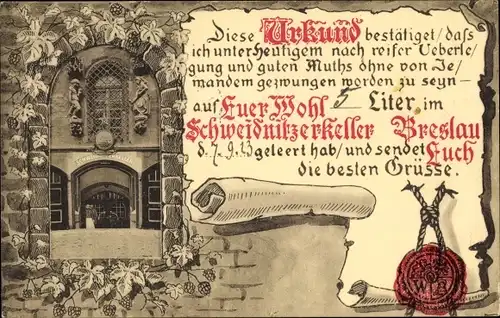 Diese Urkund bestätiget/daſs
ich unter Heutigem nach reifer Ueberle⸗
gung und guten Muths ohne von Je⸗
mandem gezwungen worden zu seyn⸗
auf Euer Wohl 5 Liter im
Schweidnitzerkeller Breslau
d. 7. 9. 13 geleert hab/und sendet Euch
die besten Grüsse.